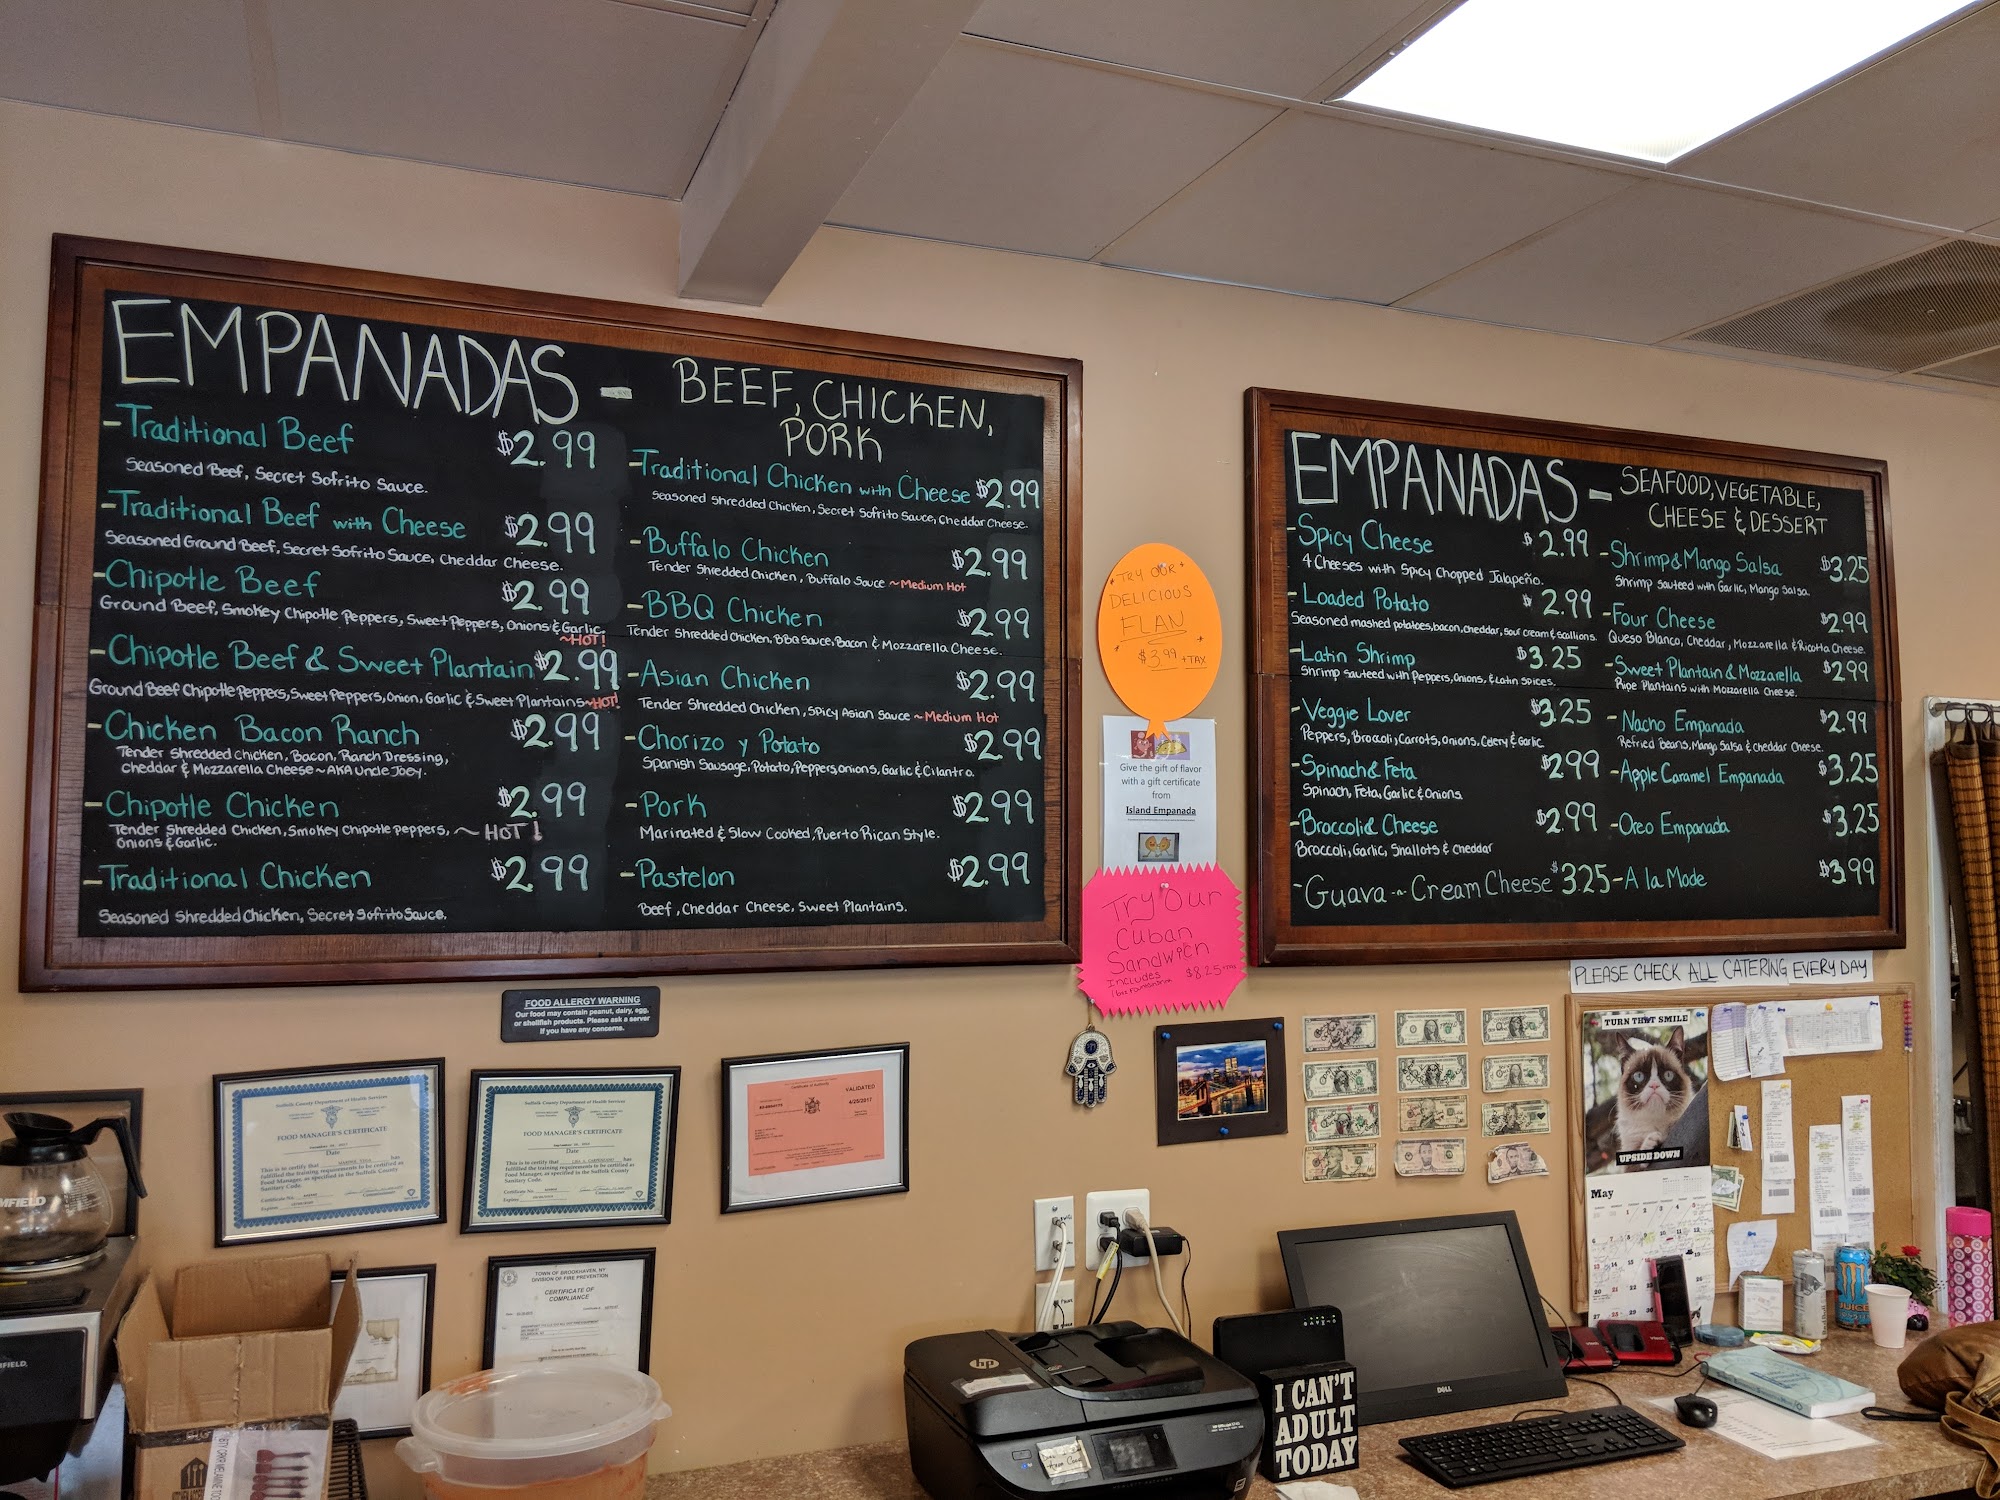 EMPANADAS - BEEF, CHICKEN,
PORK
-Traditional Beef $2.99
Seasoned Beef, Secret Sofrito Sauce.
-Traditional Beef with Cheese $2.99
Seasoned Ground Beef, Secret Sofrito Sauce, Cheddar Cheese.
-Chipotle Beef $2.99
Ground Beef, Smokey Chipotle Peppers, Sweet Peppers, Onions & Garlic.
~HOT!
-Chipotle Beef & Sweet Plantain $2.99
Ground Beef Chipotle Peppers, Sweet Peppers, Onion, Garlic & Sweet Plantains ~HOT!
-Chicken Bacon Ranch $2.99
Tender Shredded Chicken, Bacon, Ranch Dressing,
Cheddar & Mozzarella Cheese ~ AKA Uncle Joey.
-Chipotle Chicken $2.99
Tender Shredded Chicken, Smokey Chipotle Peppers, ~ HOT!
Onions & Garlic.
-Traditional Chicken $2.99
Seasoned Shredded Chicken, Secret Sofrito Sauce.
-Traditional Chicken with Cheese $2.99
Seasoned Shredded Chicken, Secret Sofrito Sauce, Cheddar Cheese.
-Buffalo Chicken $2.99
Tender Shredded Chicken, Buffalo Sauce ~Medium Hot
-BBQ Chicken $2.99
Tender Shredded Chicken, BBQ Sauce, Bacon & Mozzarella Cheese.
-Asian Chicken $2.99
Tender Shredded Chicken, Spicy Asian Sauce ~Medium Hot
-Chorizo y Potato $2.99
Spanish Sausage, Potato, Peppers, Onions, Garlic & Cilantro.
-Pork $2.99
Marinated & Slow Cooked, Puerto Rican Style.
-Pastelon $2.99
Beef, Cheddar Cheese, Sweet Plantains.
TRY OUR
DELICIOUS
FLAN
$3.99 +TAX
Give the gift of flavor
with a gift certificate
from
Island Empanada
Try Our
Cuban
Sandwich
Includes $8.25
EMPANADAS - SEAFOOD, VEGETABLE,
CHEESE & DESSERT
-Spicy Cheese $2.99
4 Cheeses with Spicy Chopped Jalapeño.
-Loaded Potato $2.99
Seasoned mashed potatoes, bacon, cheddar, sour cream & scallions.
-Latin Shrimp $3.25
Shrimp sauteed with Peppers, Onions, & Latin Spices.
-Veggie Lover $3.25
Peppers, Broccoli, Carrots, Onions, Celery & Garlic
-Spinach & Feta $2.99
Spinach, Feta, Garlic & Onions
-Broccoli & Cheese $2.99
Broccoli, Garlic, Shallots & Cheddar
-Guava -n- Cream Cheese $3.25
-Shrimp & Mango Salsa $3.25
Shrimp sauteed with Garlic, Mango Salsa.
-Four Cheese $2.99
Queso Blanco, Cheddar, Mozzarella & Ricotta Cheese.
-Sweet Plantain & Mozzarella $2.99
Ripe Plantains with Mozzarella Cheese.
-Nacho Empanada $2.99
Refried Beans, Mango Salsa & Cheddar Cheese.
-Apple Caramel Empanada $3.25
-Oreo Empanada $3.25
-A la Mode $3.99
PLEASE CHECK ALL CATERING EVERY DAY
FOOD ALLERGY WARNING
Our food may contain peanut, dairy, egg,
or shellfish products. Please ask a server
if you have any concerns.
Suffolk County Department of Health Services
FOOD MANAGER'S CERTIFICATE
Date
This is to certify that
fulfilled the training requirements to be certified as
Food Manager, as specified in the Suffolk County
Sanitary Code.
Suffolk County Department of Health Services
FOOD MANAGER'S CERTIFICATE
Date
This is to certify that
fulfilled the training requirements to be certified as
Food Manager, as specified in the Suffolk County
Sanitary Code.
Certificate of Authority
VALIDATED
4/25/2017
TOWN OF BROOKHAVEN, NY
DIVISION OF FIRE PREVENTION
CERTIFICATE OF
COMPLIANCE
TURN THAT SMILE
UPSIDE DOWN
May
hp
DELL
I CAN'T
ADULT
TODAY
JUICE